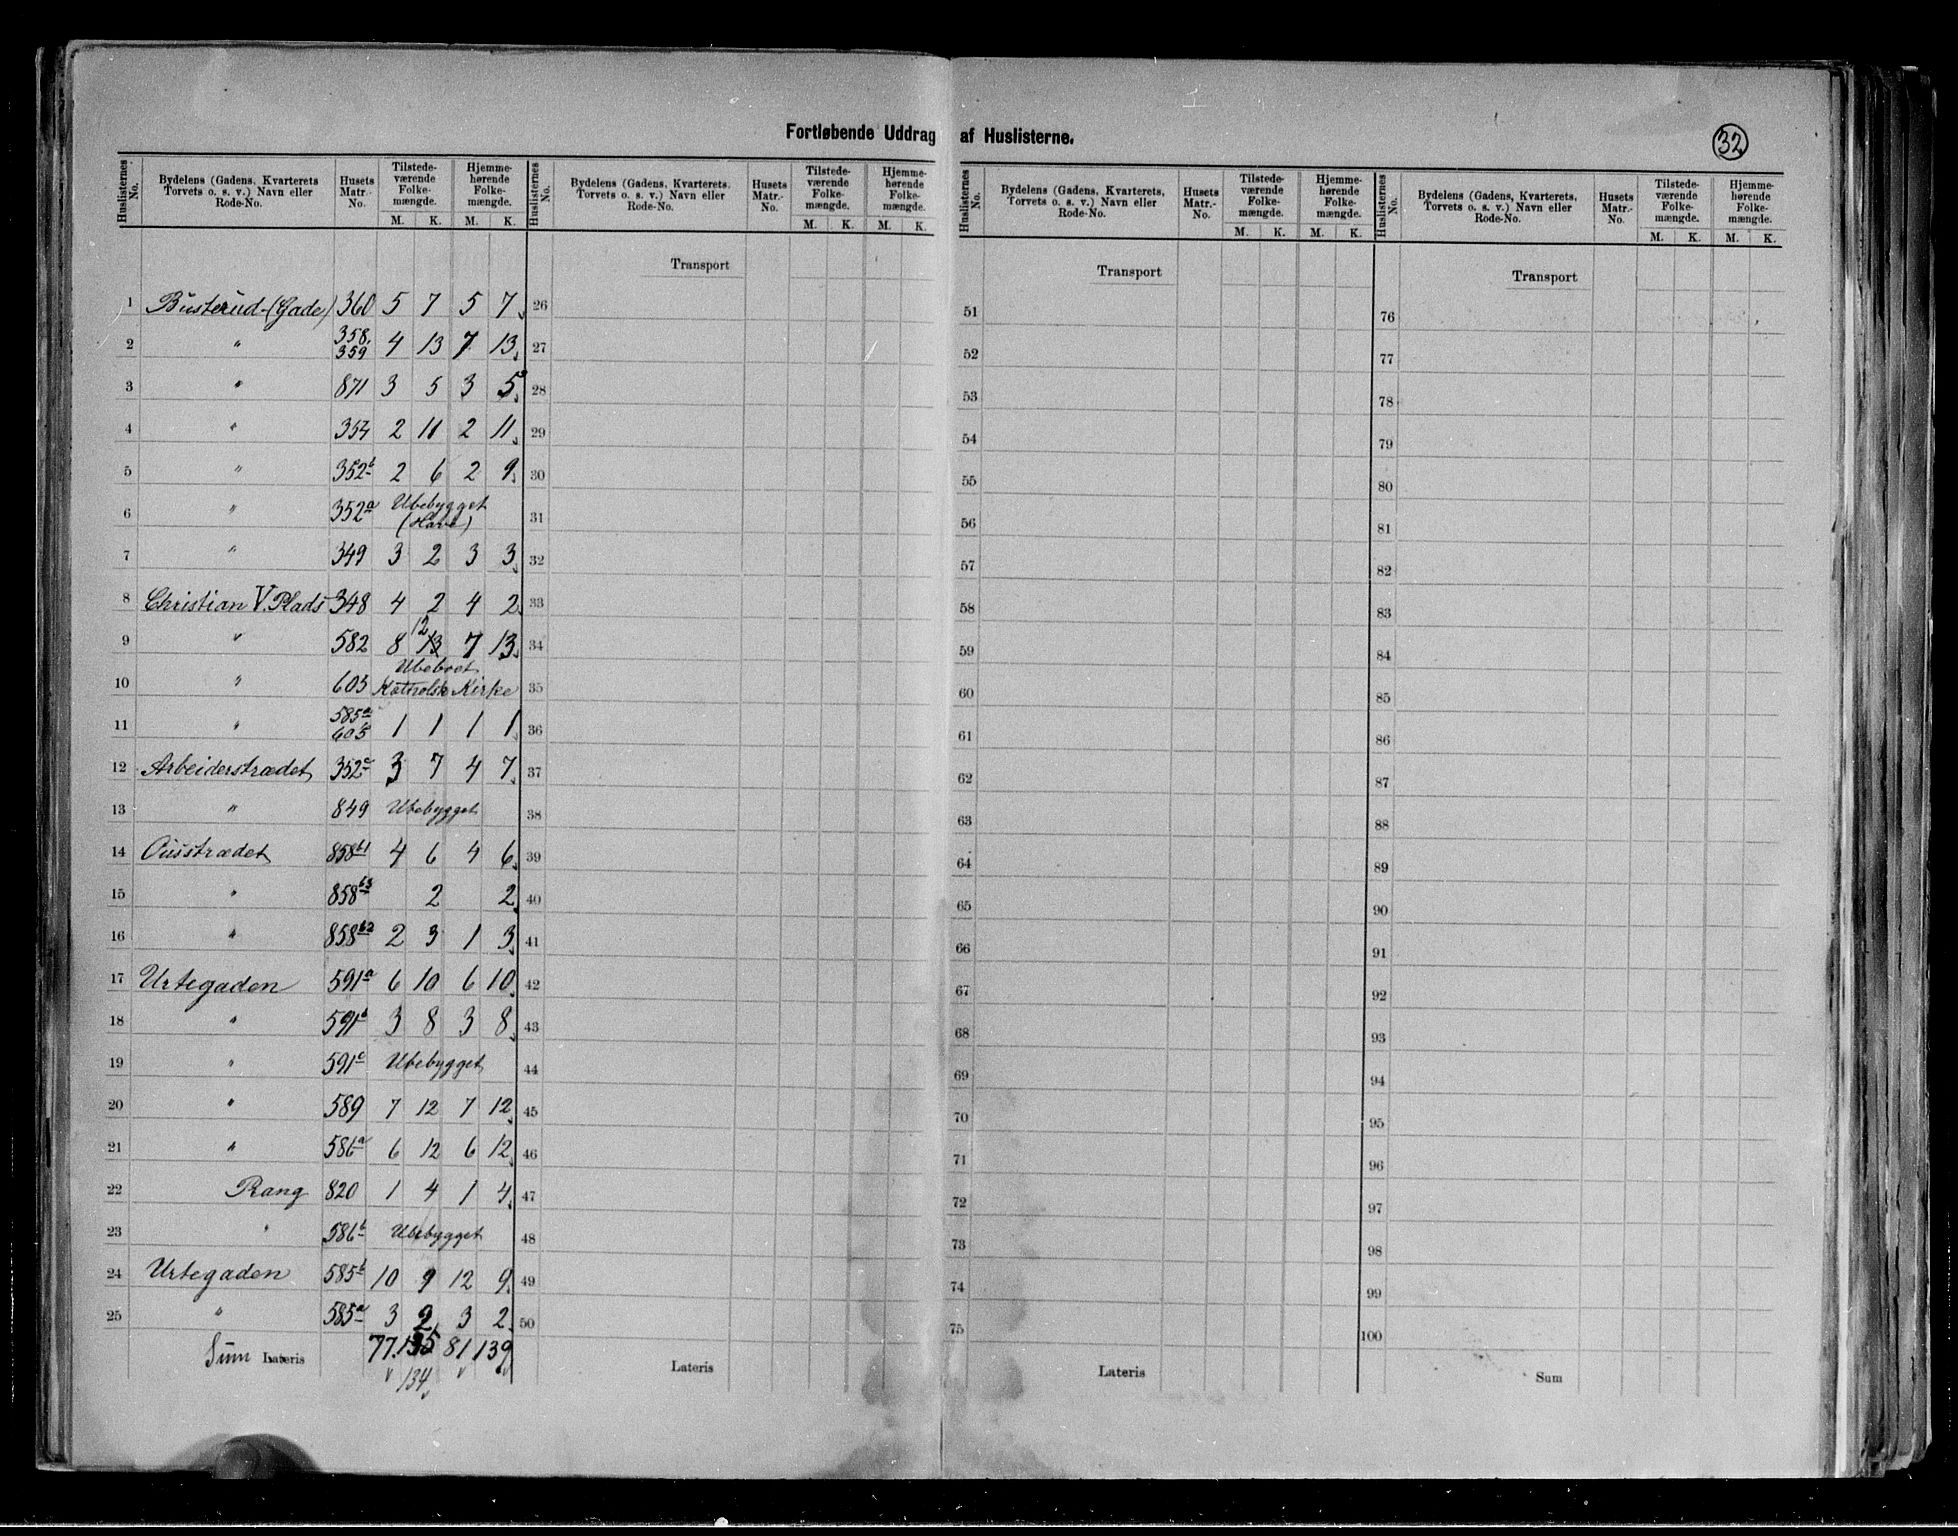 Fortløbende Uddrag af Huslisterne.
32
Huslisternes No. | Bydelens (Gadens, Kvarterets Torvets o. s. v.) Navn eller Rode-No. | Husets Matr. No. | Tilstedeværende Folkemængde. M. K. | Hjemmehørende Folkemængde. M. K.
Huslisternes No. | Bydelens (Gadens, Kvarterets, Torvets o. s. v.) Navn eller Rode-No. | Husets Matr.-No. | Tilstedeværende Folkemængde. M. K. | Hjemmehørende Folkemængde. M. K.
Huslisternes No. | Bydelens (Gadens, Kvarterets, Torvets o. s. v.) Navn eller Rode-No. | Husets Matr.-No. | Tilstedeværende Folkemængde. M. K. | Hjemmehørende Folkemængde. M. K.
Huslisternes No. | Bydelens (Gadens, Kvarterets, Torvets o. s. v.) Navn eller Rode-No. | Husets Matr.-No. | Tilstedeværende Folkemængde. M. K. | Hjemmehørende Folkemængde. M. K.
Transport Transport Transport
1 Busterud-(Gade) 360 5 7 5 7 26 51 76
2 " 358, 359 4 13 7 13 27 52 77
3 " 871 3 5 3 5 28 53 78
4 " 354 2 11 2 11 29 54 79
5 " 352b 2 6 2 9 30 55 80
6 " 352a Ubebygget (Have) 31 56 81
7 " 349 3 2 3 3 32 57 82
8 Christian V. Plads 348 4 2 4 2 33 58 83
9 " 582 8 12 13 7 13 34 59 84
10 " 603 Ubeboet Katholsk Kirke 35 60 85
11 " 585a 603 1 1 1 1 36 61 86
12 Arbeiderstrædet 352c 3 7 4 7 37 62 87
13 " 849 Ubebygget 38 63 88
14 Ousstrædet 858b1 4 6 4 6 39 64 89
15 " 858b3 2 2 40 65 90
16 " 858b2 2 3 1 3 41 66 91
17 Urtegaden 591a 6 10 6 10 42 67 92
18 " 591b 3 8 3 8 43 68 93
19 " 591c Ubebygget 44 69 94
20 " 589 7 12 7 12 45 70 95
21 " 586a 6 12 6 12 46 71 96
22 Rang 820 1 4 1 4 47 72 97
23 " 586b Ubebygget 48 73 98
24 Urtegaden 585b 10 9 12 9 49 74 99
25 " 585a 3 2 3 2 50 75 100
Sum Lateris 77 135 81 139 Lateris Lateris Sum
134